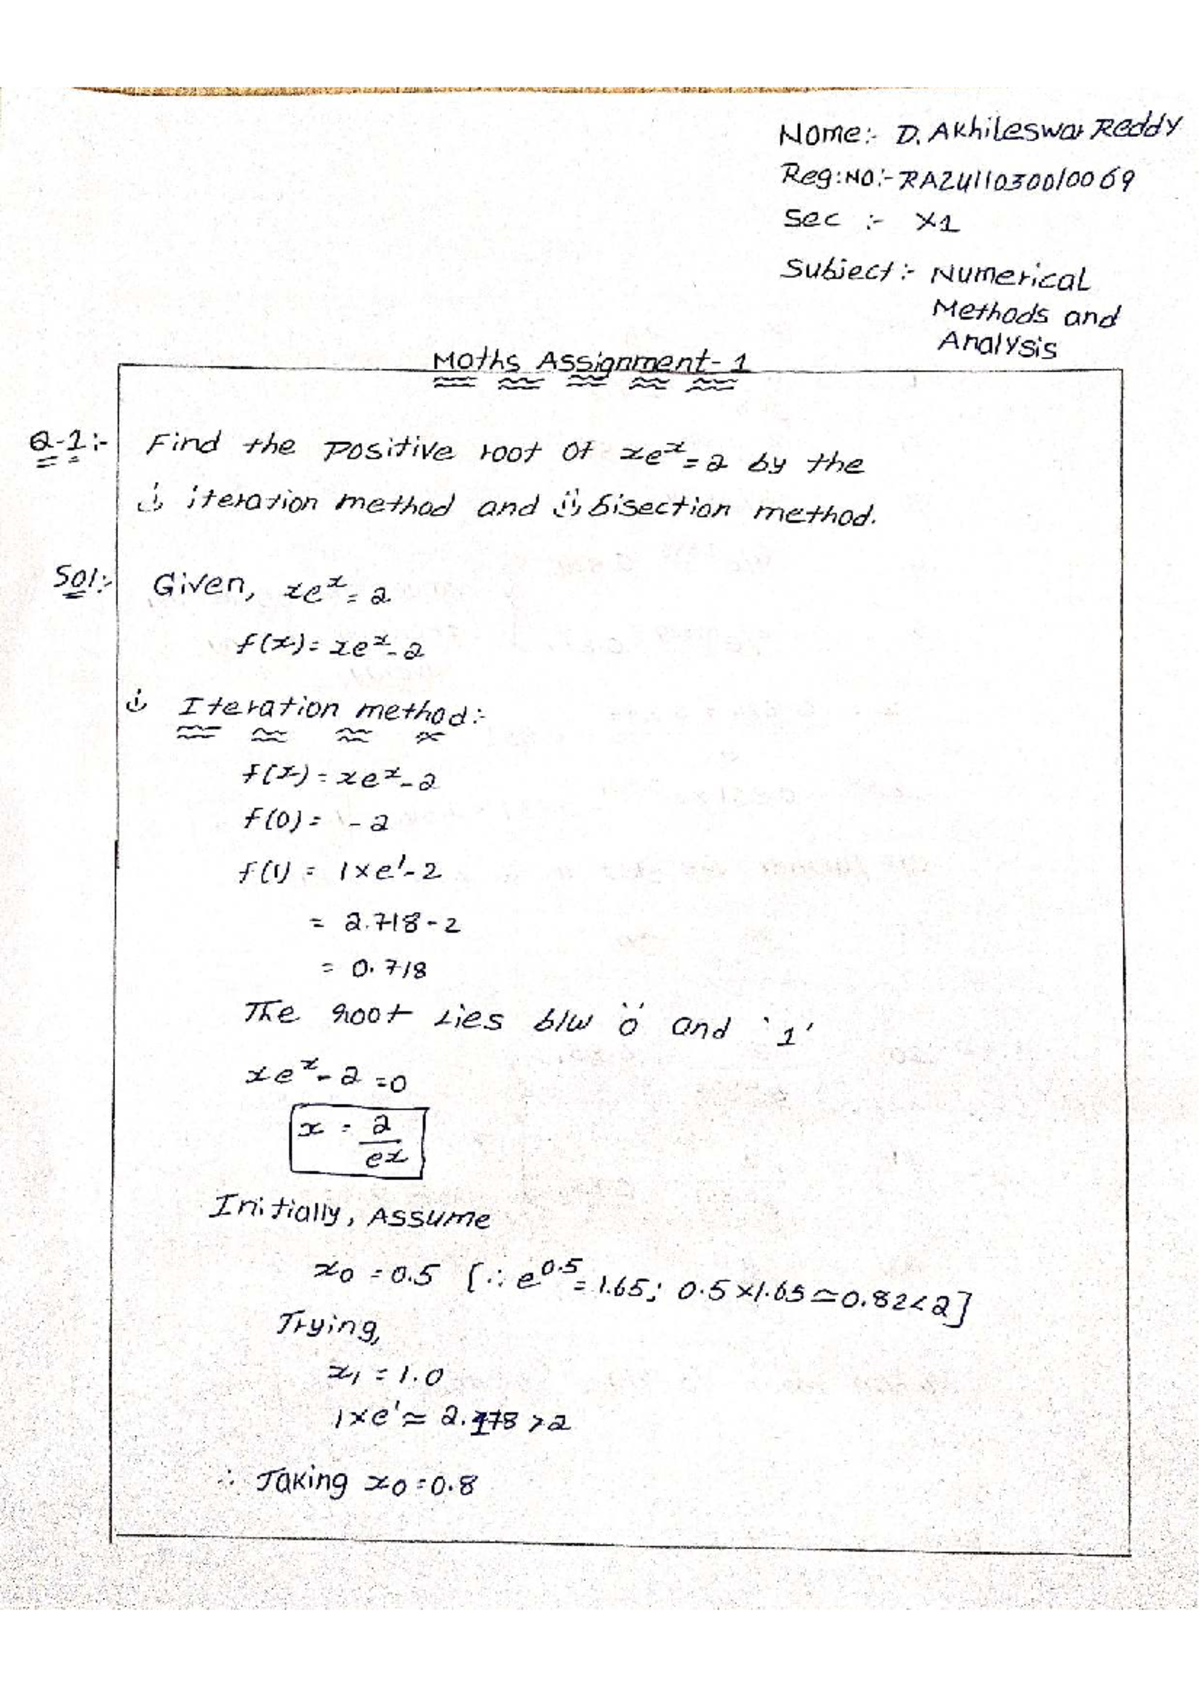 Name:- D. Akhileswar Reddy
Reg:No:- RA2411030010069
Sec :- X1
Subject:- Numerical
Methods and
Analysis
Maths Assignment-1
Q-1:- Find the positive root of xe^x = 2 by the
i) iteration method and ii) bisection method.
Sol:- Given, xe^x = 2
f(x) = xe^x - 2
i) Iteration method:-
f(x) = xe^x - 2
f(0) = - 2
f(1) = 1×e^1 - 2
= 2.718 - 2
= 0.718
The root Lies b/w '0' and '1'
xe^x - 2 = 0
x = 2/e^x
Initially, Assume
x0 = 0.5 [∵ e^0.5 = 1.65; 0.5×1.65 ≃ 0.82 < 2]
Trying,
x1 = 1.0
1×e^1 ≃ 2.178 > 2
∴ Taking x0 = 0.8